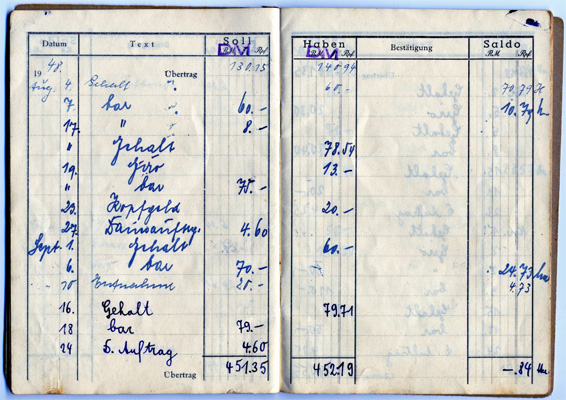 Datum Text Soll Haben Bestätigung Saldo
DM Rpf DM Rpf RM Rpf
1948. Übertrag 130.15 140.94
Aug. 4. Gehalt " 60.- 70.79 H
7 bar " 60.- 10.79
17. " " 8.-
" Gehalt 78.54
19. Giro 13.-
" bar 75.-
23. Kopfgeld 20.-
27. Dauerauftrg. 4.60
Sept. 1. Gehalt 60.-
6. bar 70.- 24.73
10 Entnahme 20.- 4.73
16. Gehalt 79.71
18 bar 79.-
24 D. Auftrag 4.60
Übertrag 451.35 452.19 -.84